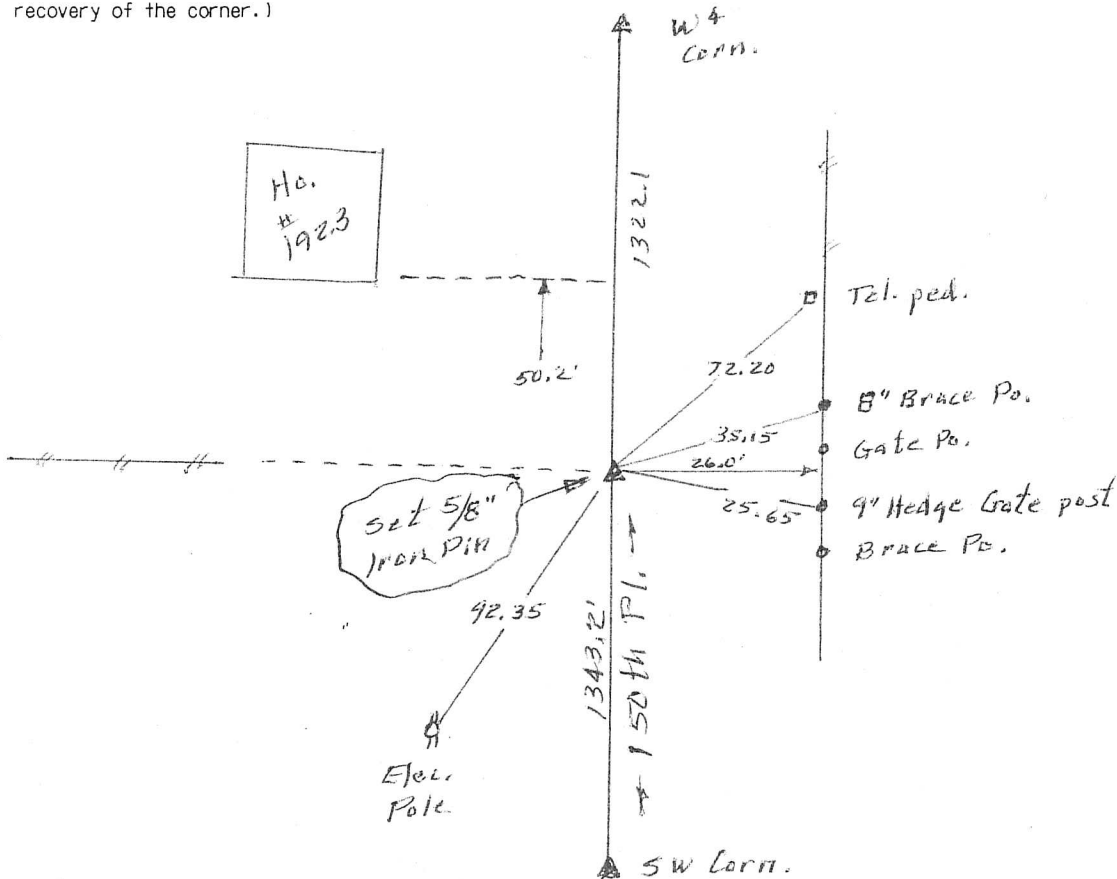 recovery of the corner.)
W 4
Corn.
Ho.
#
1923
1322.1
Tel. ped.
50.2'
72.20
8" Brace Po.
35.15
Gate Po.
26.0'
Set 5/8"
Iron Pin
25.65
9" Hedge Gate post
Brace Po.
92.35
1343.2'
150th Pl.
Elec.
Pole
SW Corn.